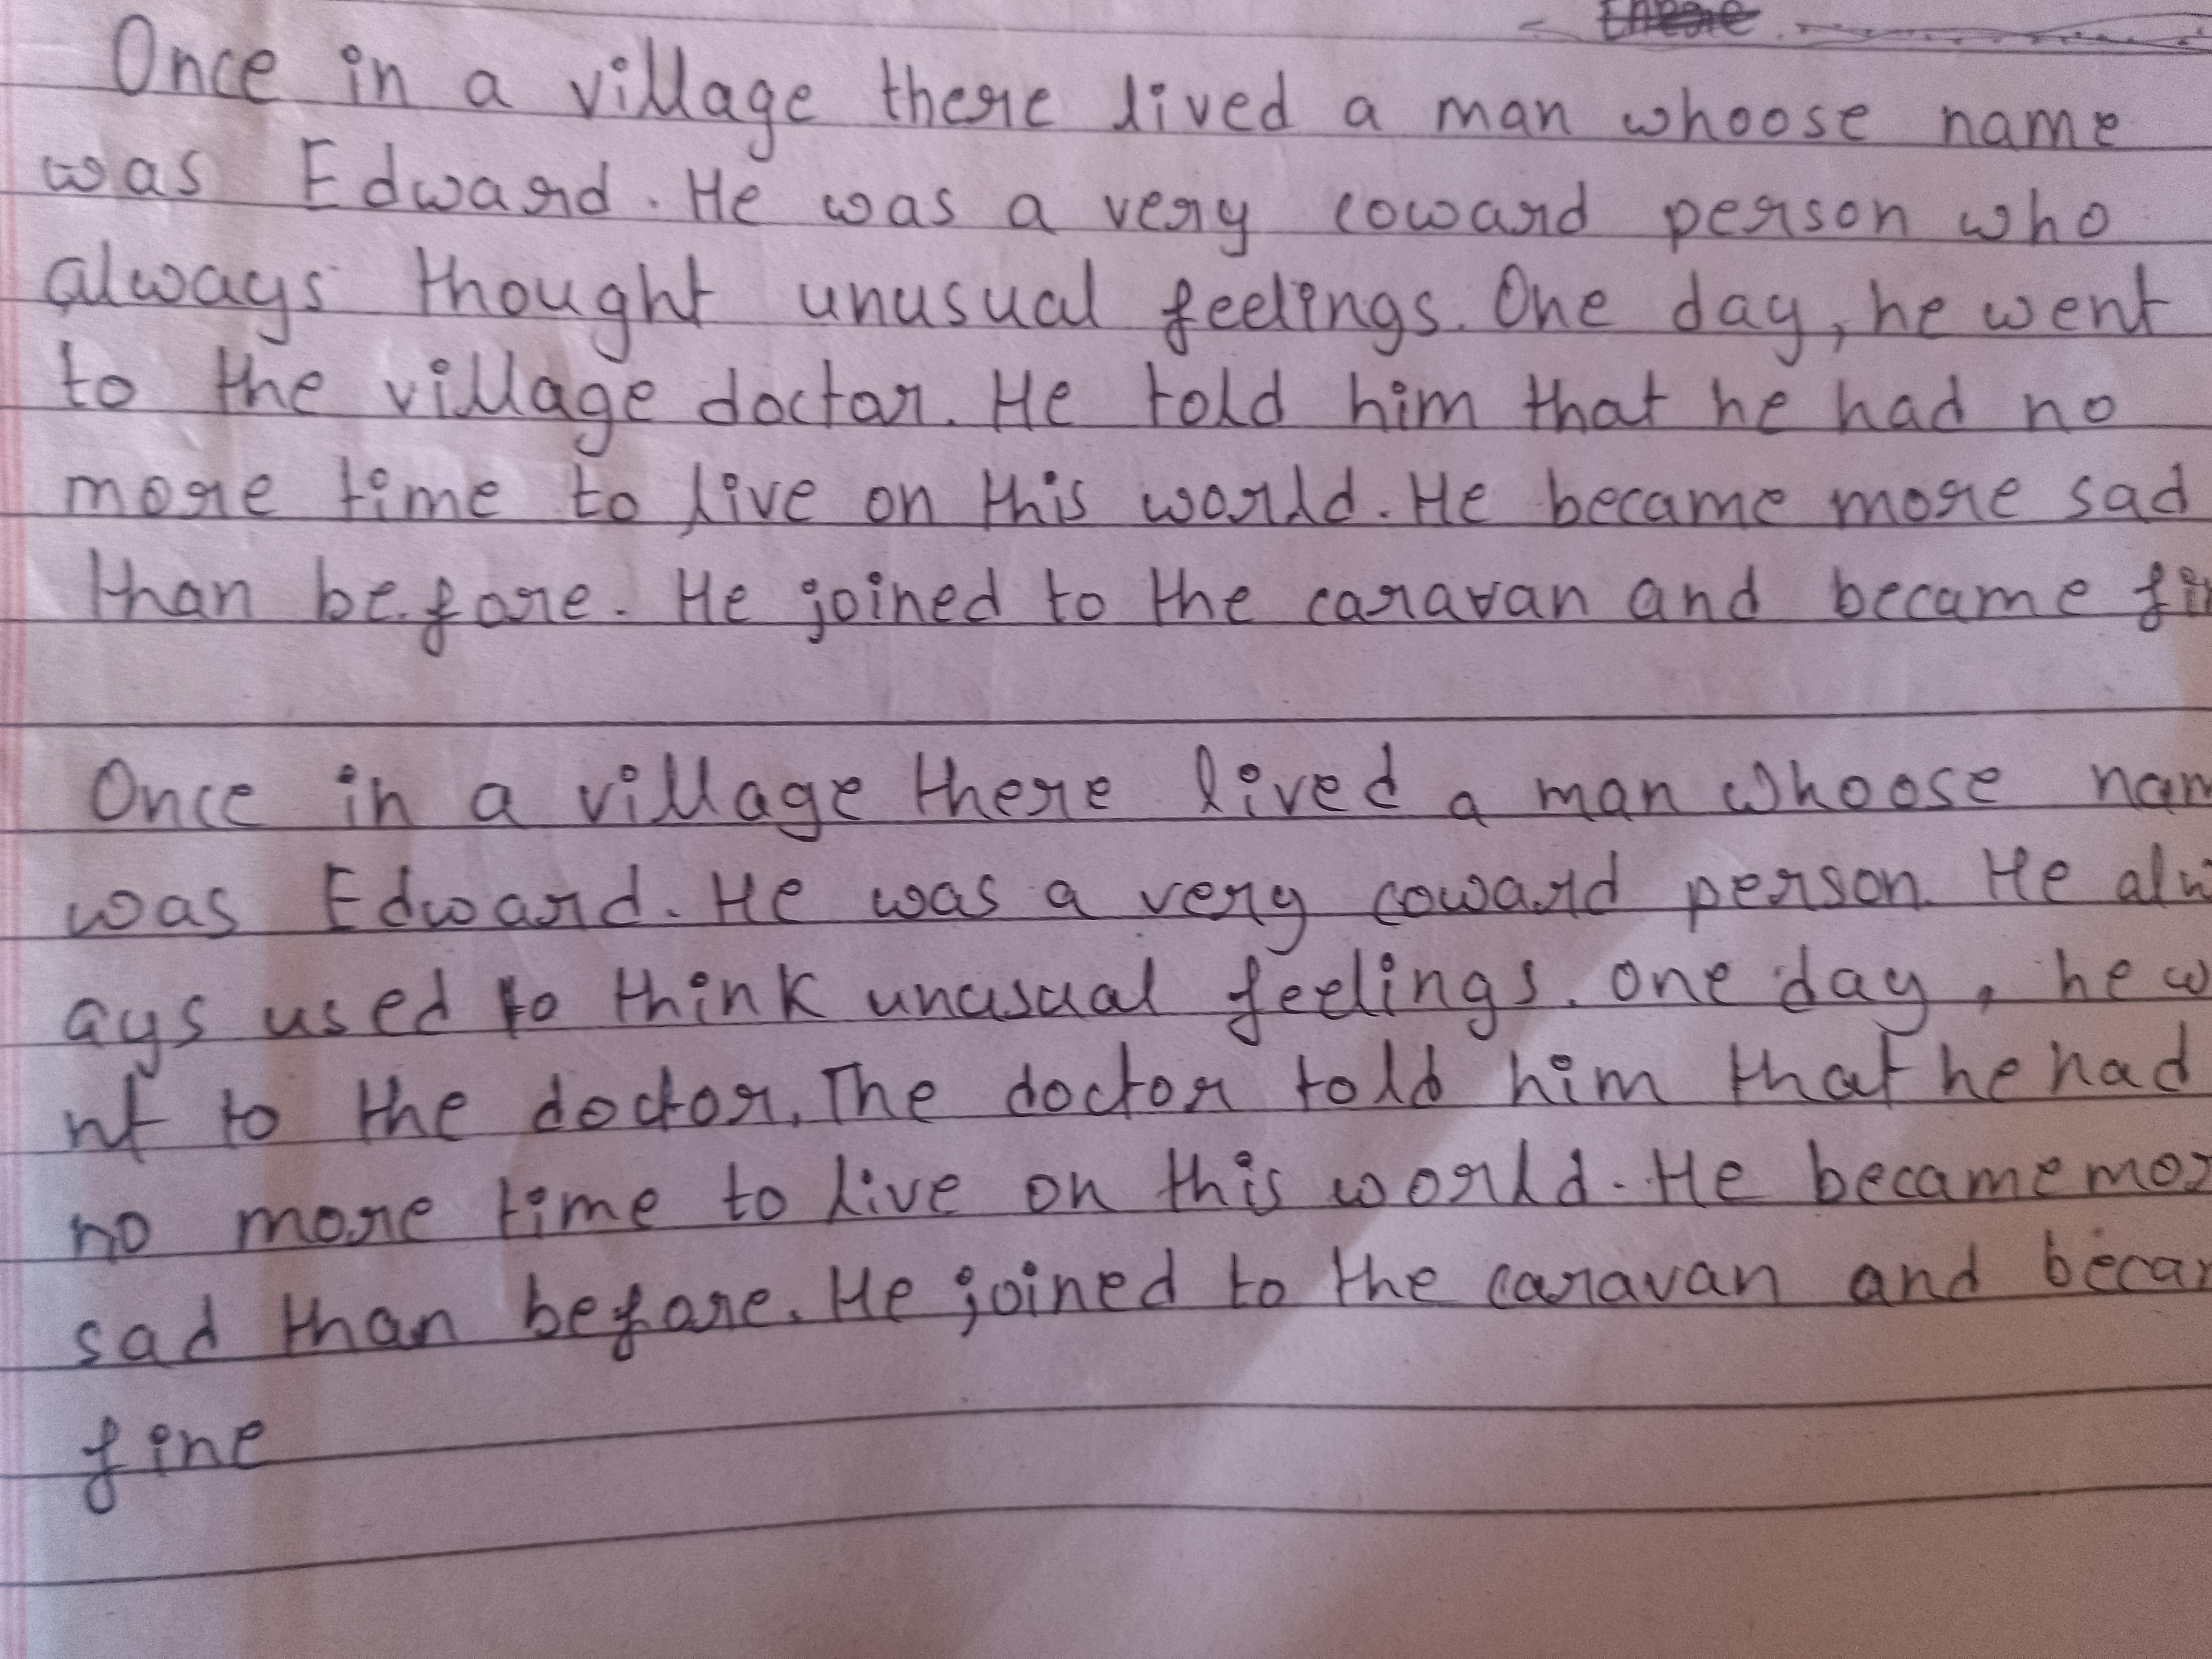 Once in a village there lived a man whoose name
was Edward. He was a very coward person who
always thought unusual feelings. One day, he went
to the village doctor. He told him that he had no
more time to live on this world. He became more sad
than before. He joined to the caravan and became
Once in a village there lived a man whoose
was Edward. He was a very coward person. He alw
ays used to think unusual feelings. one day, he w
nt to the doctor. The doctor told him that he had
no more time to live on this world. He became mor
sad than before. He joined to the caravan and
fine